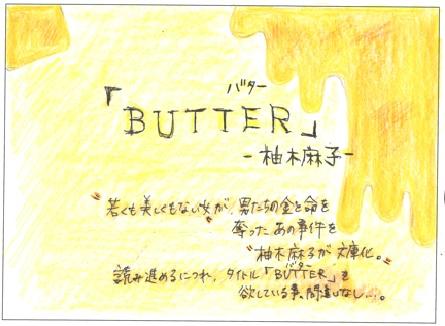 バター
「BUTTER」
-柚木麻子-
"若くも美しくもない女が、男たちの金と命を
奪ったあの事件を"
"柚木麻子が文庫化。"
読み進めるにつれ、タイトル「BUTTER」を
バター
欲している事、間違いなし…。